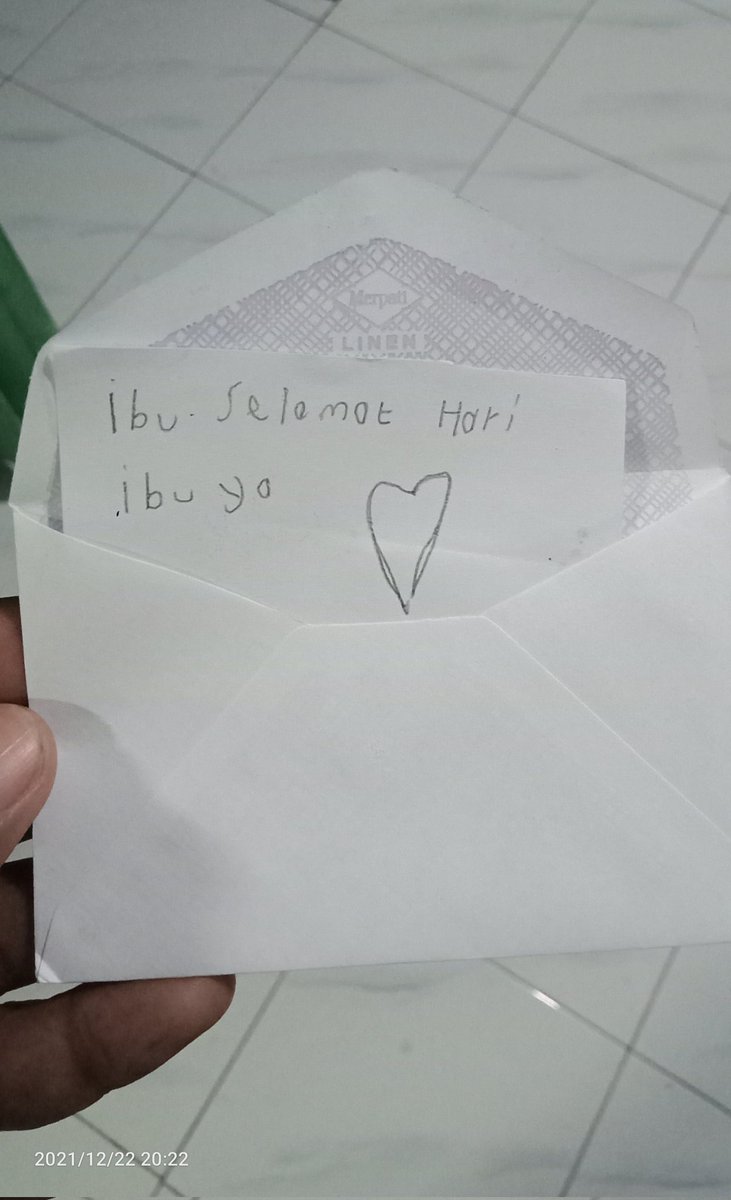 Merpati
LINEN
ibu. Selamat Hari
ibu ya
2021/12/22 20:22